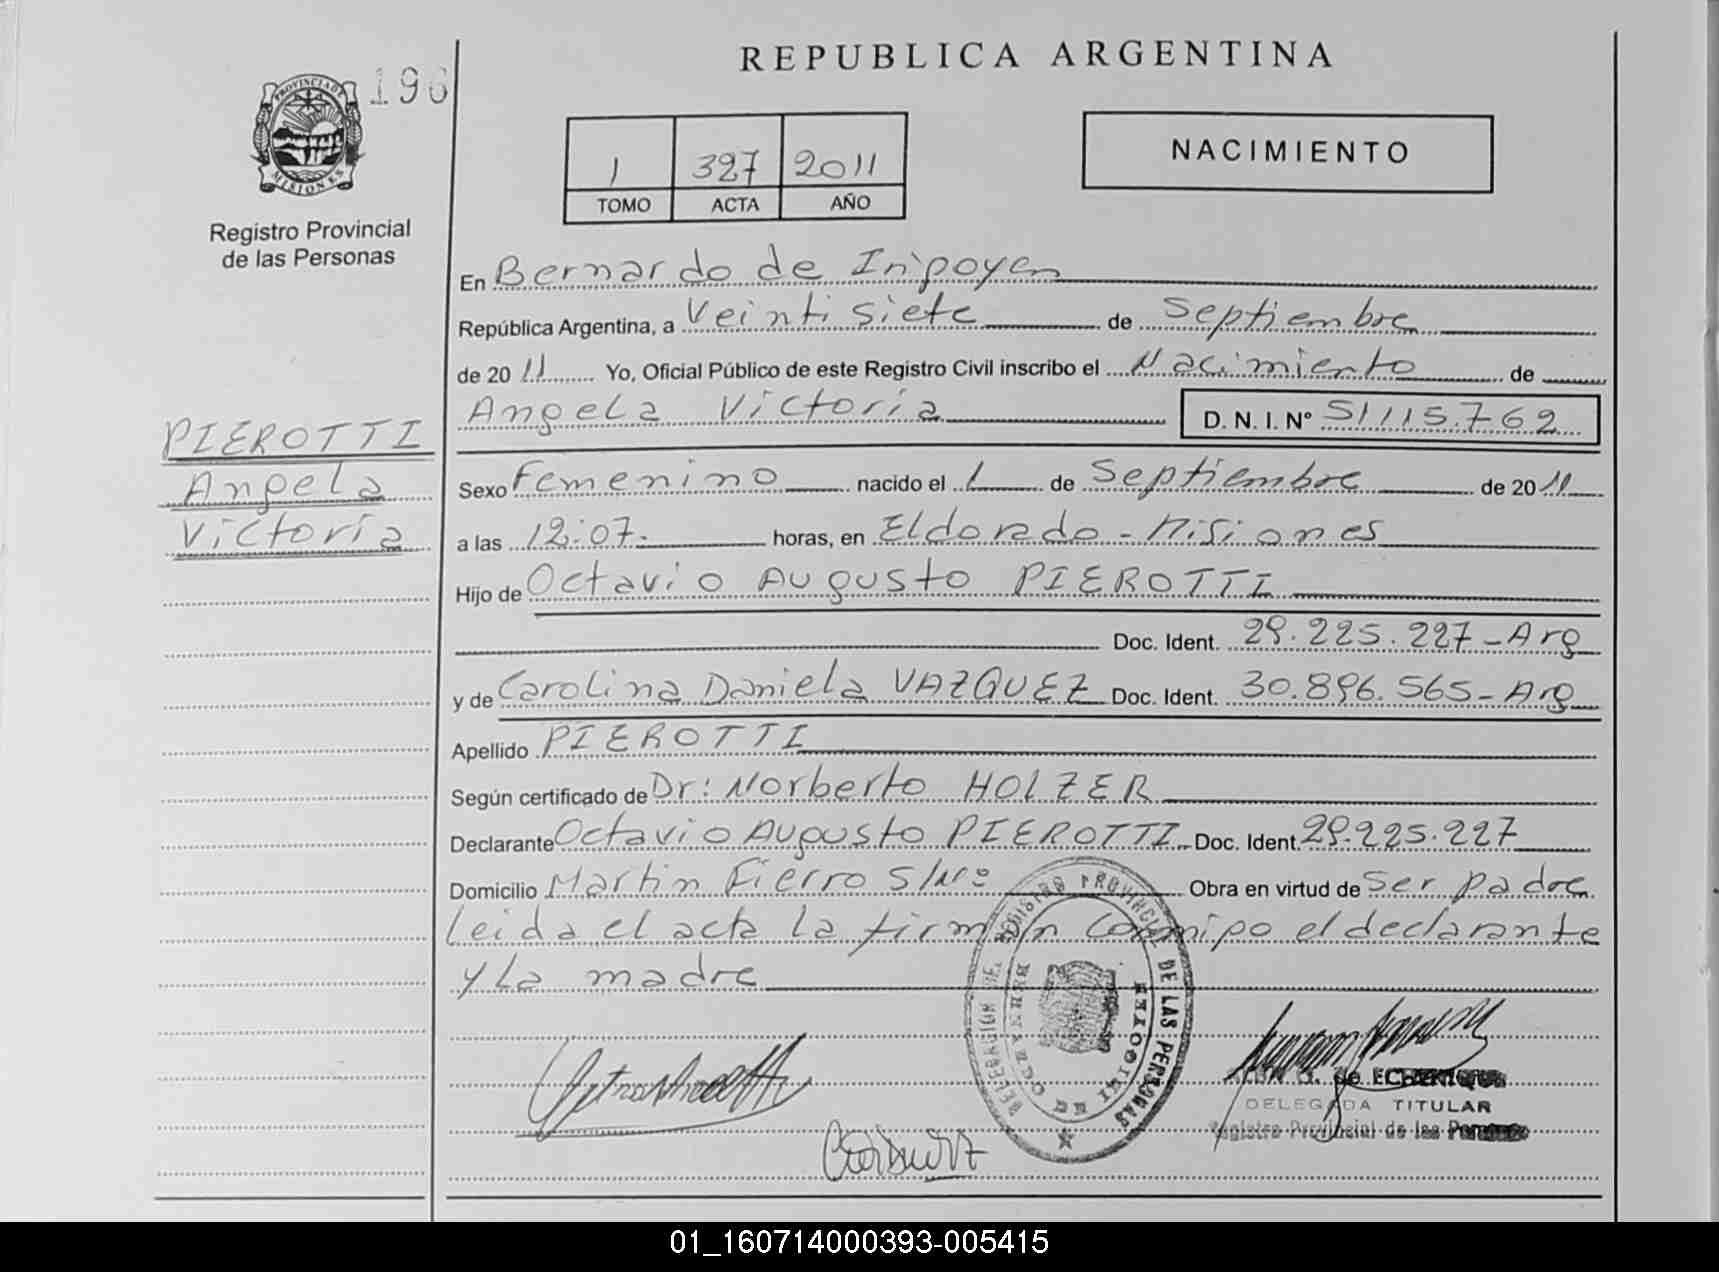 REPUBLICA ARGENTINA
196
PROVINCIA DE
MISIONES
Registro Provincial
de las Personas
1 327 2011
TOMO ACTA AÑO
NACIMIENTO
En Bernardo de Irigoyen
República Argentina, a Veintisiete de Septiembre
de 2011 Yo, Oficial Público de este Registro Civil inscribo el Nacimiento de
Angela Victoria D. N. I. Nº 51115.762
PIEROTTI
Angela
Victoria
Sexo Femenino nacido el 1 de Septiembre de 2011
a las 12:07. horas, en Eldorado - Misiones
Hijo de Octavio Augusto PIEROTTI
Doc. Ident. 29.225.227-Arg
y de Carolina Daniela VAZQUEZ Doc. Ident. 30.896.565-Arg
Apellido PIEROTTI
Según certificado de Dr: Norberto HOLZER
Declarante Octavio Augusto PIEROTTI Doc. Ident. 29.225.227
Domicilio Martin Fierro S/Nº Obra en virtud de Ser padre
Leida el acta la firman conmigo el declarante
y la madre
DELEGACION DEL REGISTRO PROVINCIAL DE LAS PERSONAS
BERNARDO DE IRIGOYEN
de ECHENIQUE
DELEGADA TITULAR
Registro Provincial de las Personas
01_160714000393-005415